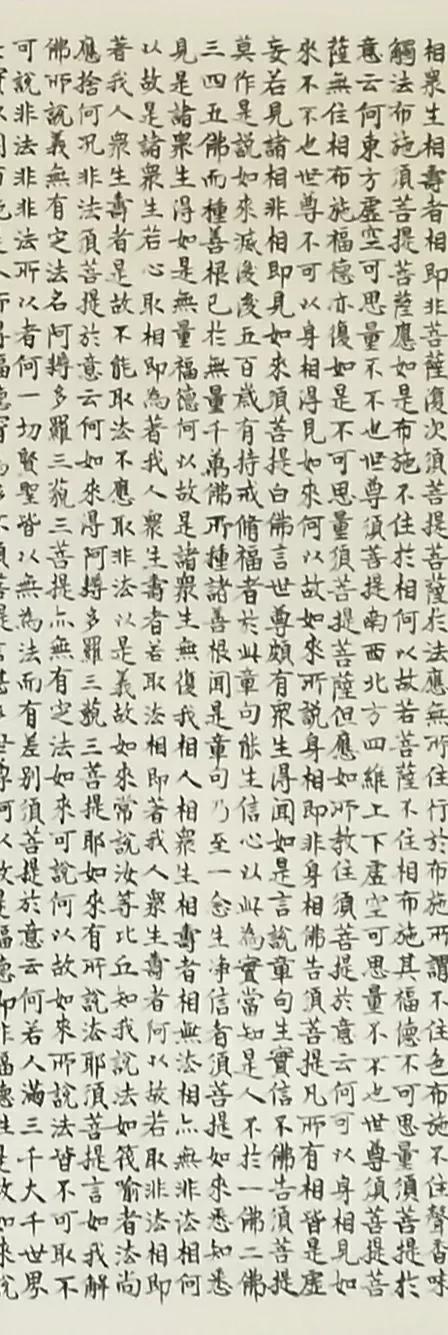 相衆生相壽者相即非菩薩復次須菩提菩薩於法應無所住行於布施所謂不住色布施不住聲香味
觸法布施須菩提菩薩應如是布施不住於相何以故若菩薩不住相布施其福德不可思量須菩提於
意云何東方虛空可思量不不也世尊須菩提南西北方四維上下虛空可思量不不也世尊須菩提菩
薩無住相布施福德亦復如是不可思量須菩提菩薩但應如所教住須菩提於意云何可以身相見如
來不不也世尊不可以身相得見如來何以故如來所說身相即非身相佛告須菩提凡所有相皆是虛
妄若見諸相非相即見如來須菩提白佛言世尊頗有衆生得聞如是言說章句生實信不佛告須菩提
莫作是說如來滅後後五百歲有持戒脩福者於此章句能生信心以此為實當知是人不於一佛二佛
三四五佛而種善根已於無量千萬佛所種諸善根聞是章句乃至一念生淨信者須菩提如來悉知悉
見是諸衆生得如是無量福德何以故是諸衆生無復我相人相衆生相壽者相無法相亦無非法相何
以故是諸衆生若心取相即為著我人衆生壽者若取法相即著我人衆生壽者何以故若取非法相即
著我人衆生壽者是故不能取法不應取非法以是義故如來常說汝等比丘知我說法如筏喻者法尚
應捨何況非法須菩提於意云何如來得阿耨多羅三藐三菩提耶如來有所說法耶須菩提言如我解
佛所說義無有定法名阿耨多羅三藐三菩提亦無有定法如來可說何以故如來所說法皆不可取不
可說非法非非法所以者何一切賢聖皆以無為法而有差別須菩提於意云何若人滿三千大千世界